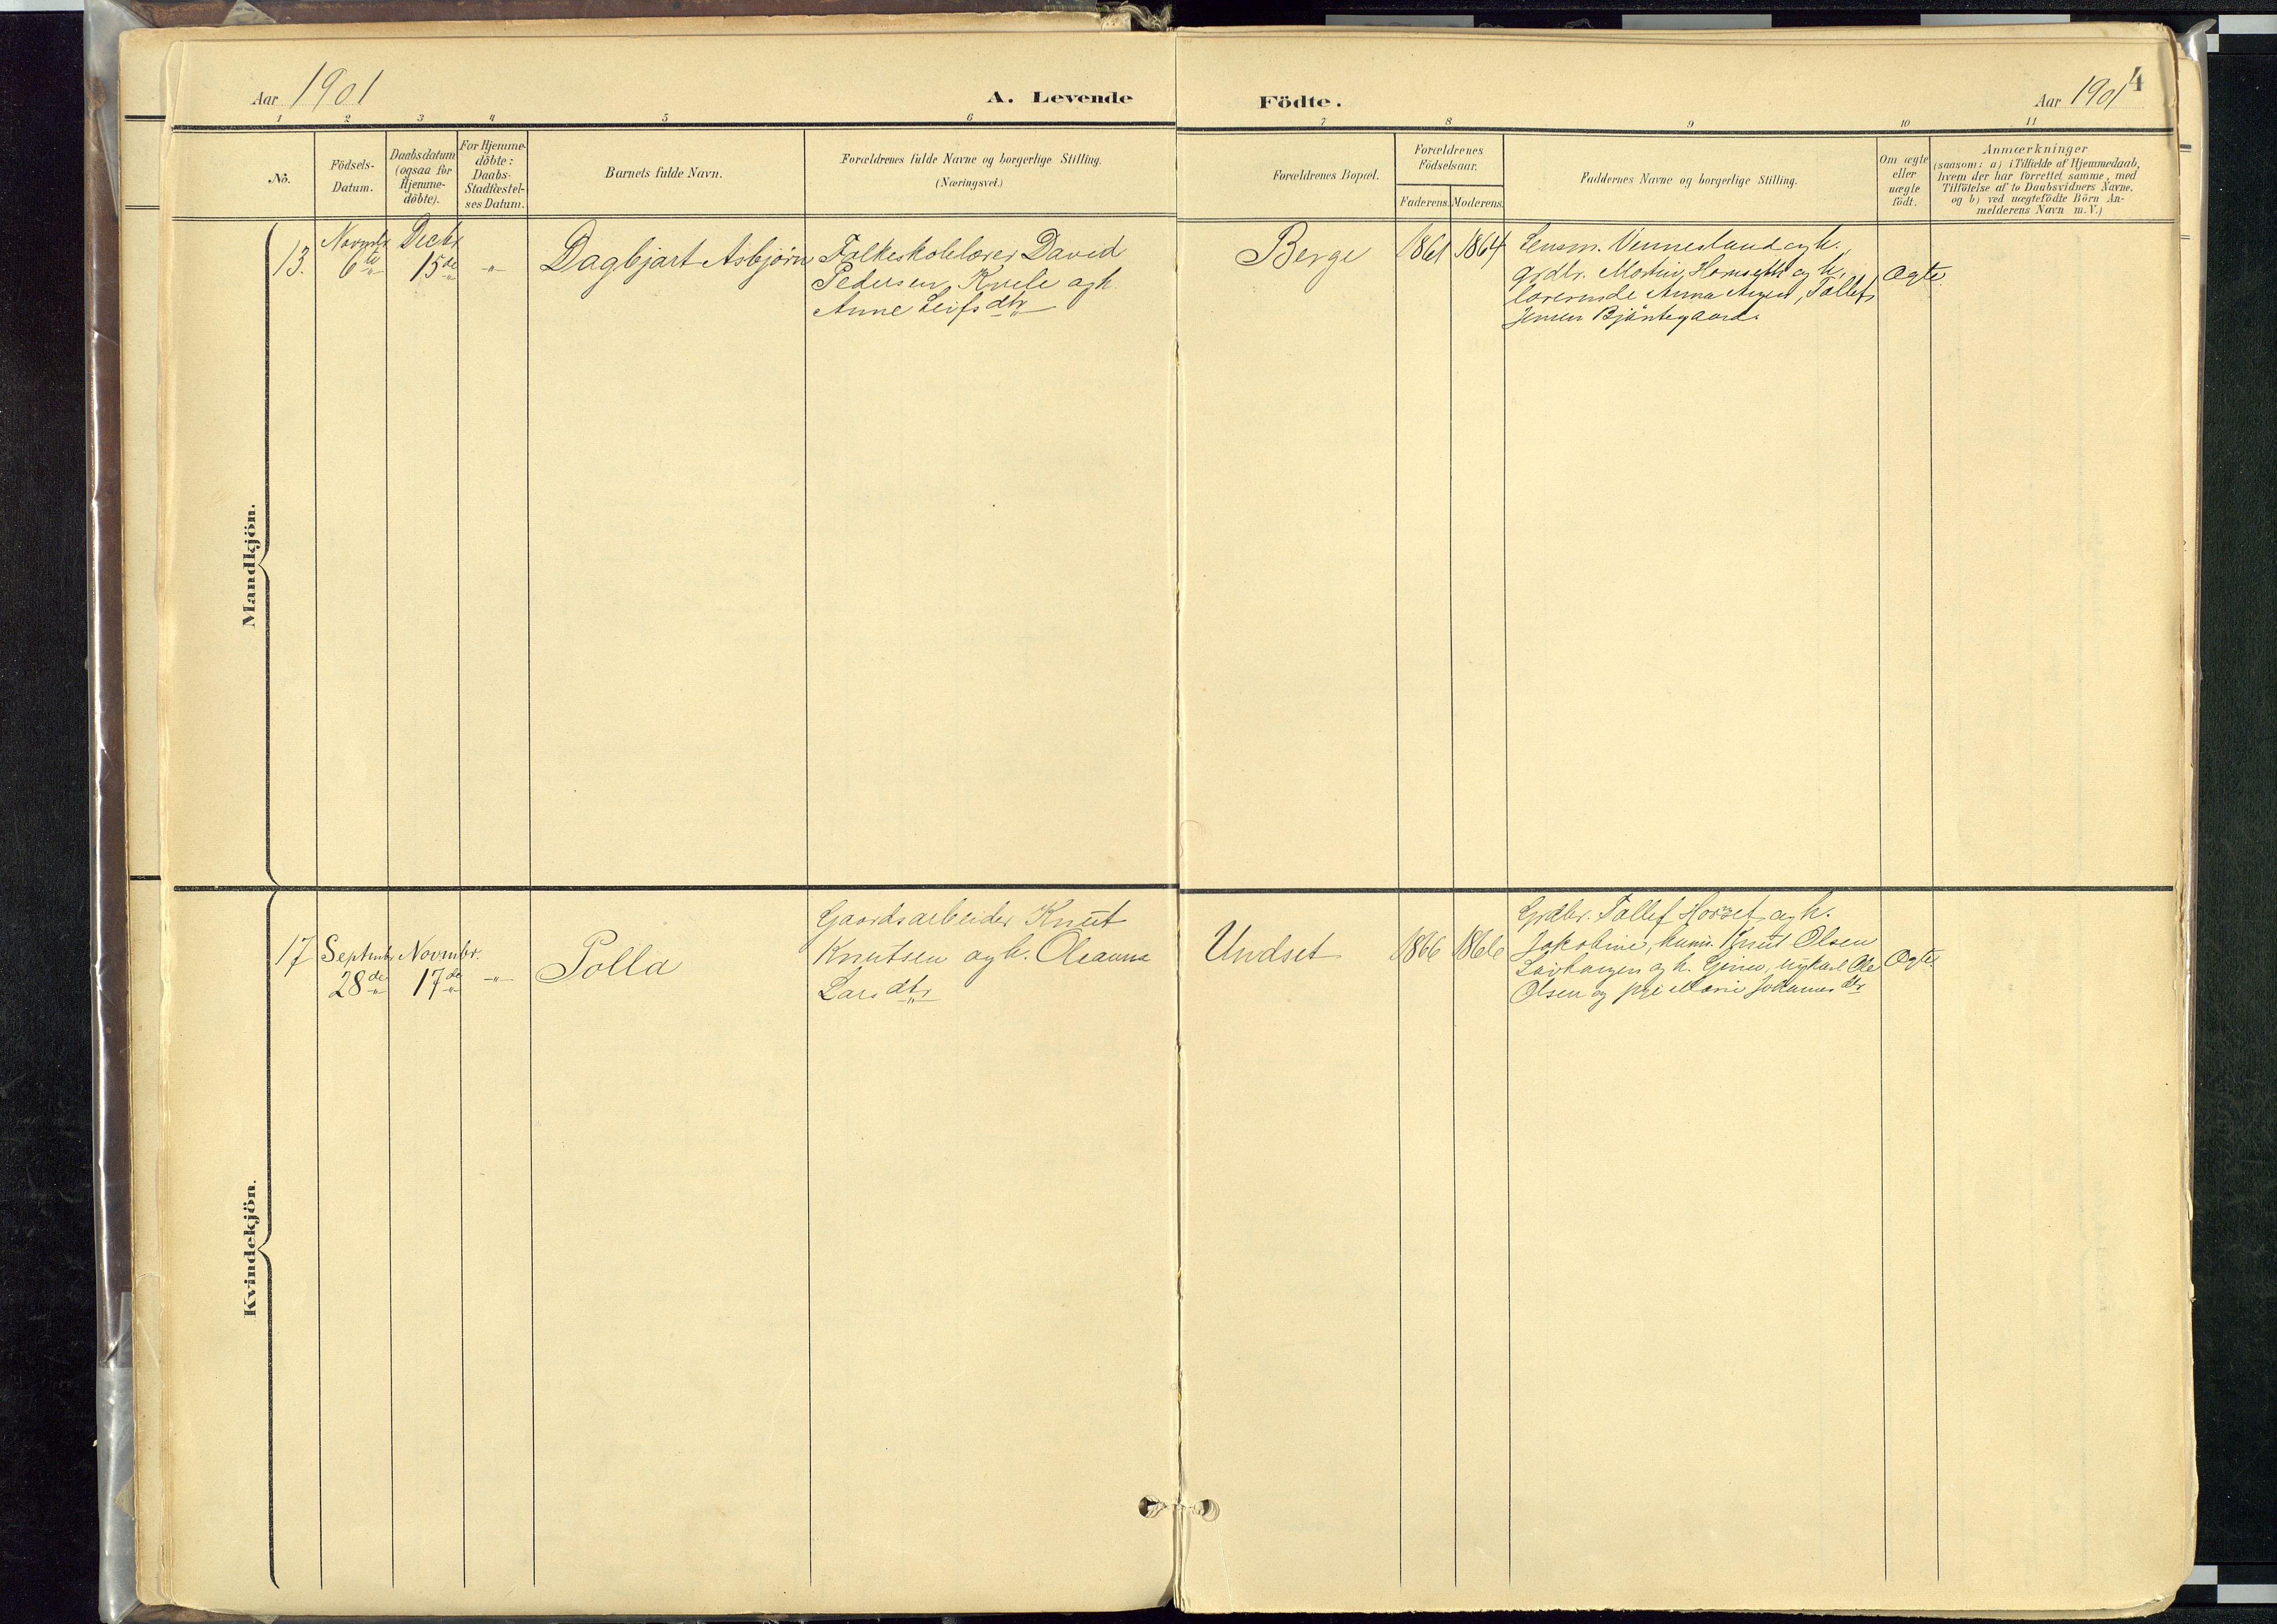 Aar 1901
A. Levende
Födte.
Aar 1901
4
1 2 3 4 5 6 7 8 9 10 11
No.
Födsels-
Datum.
Daabsdatum
(ogsaa for
Hjemme-
döbte).
For Hjemme-
döbte:
Daabs-
Stadfæstel-
ses Datum.
Barnets fulde Navn.
Forældrenes fulde Navne og borgerlige Stilling.
(Næringsvei.)
Forældrenes Bopæl.
Forældrenes
Födselsaar.
Faderens. Moderens.
Faddernes Navne og borgerlige Stilling.
Om ægte
eller
uægte
födt.
Anmærkninger
(saasom: a) i Tilfælde af Hjemmedaab,
hvem der har forrettet samme, med
Tilföielse af to Daabsvidners Navne,
og b) ved uægtefödte Börn An-
melderens Navn m. V.)
Mandkjön.
13.
Novmbr
6te
Decbr
15de
"
Dagbjart Asbjørn
Folkeskolelærer David
Pedersen Kvele og h.
Anne Leifsdtr
Berge
1861
1864
Lensm. Vennesland og h.,
grdbr. Martin og h.,
lærerinde Anna Tollef
Jensen
Ægte.
Kvindekjön.
17
Septmbr
28de
Novmbr.
17de
"
Polla
Gaardsarbeider Knut
Knutsen og h. Oleanna
Larsdtr
Undset
1866
1866
Grdbr. Tollef Horset og h.
Jakobine, Knut Olsen
og h. Ole
Olsen og pige Marie Johannesdtr
Ægte.